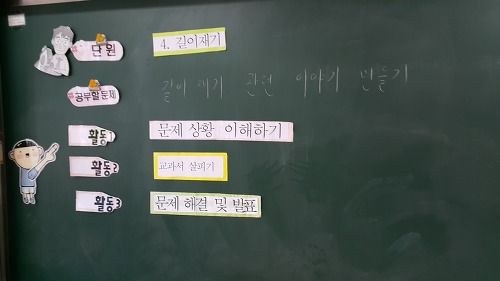 단원 4. 길이재기
공부할문제 길이 재기 관련 이야기 만들기
활동1 문제 상황 이해하기
활동2 교과서 살피기
활동3 문제 해결 및 발표